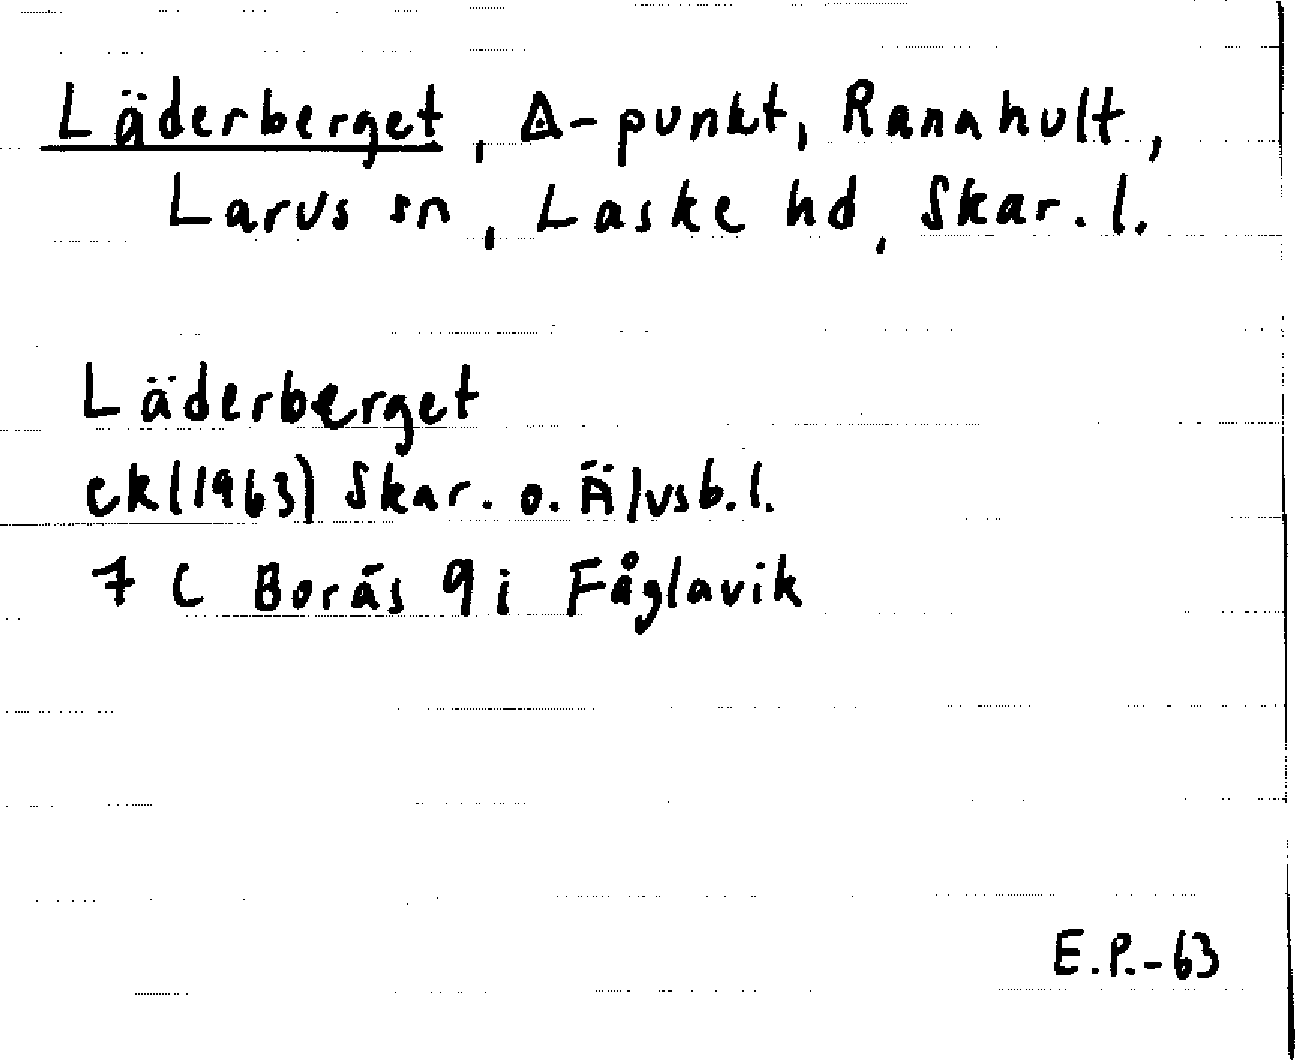 Läderberget, ∆-punkt, Ranahult,
Larvs sn, Laske hd, Skar. l.
Läderberget
ek(1963) Skar. o. Älvsb. l.
7 C Borås 9 i Fåglavik
E.P.-63